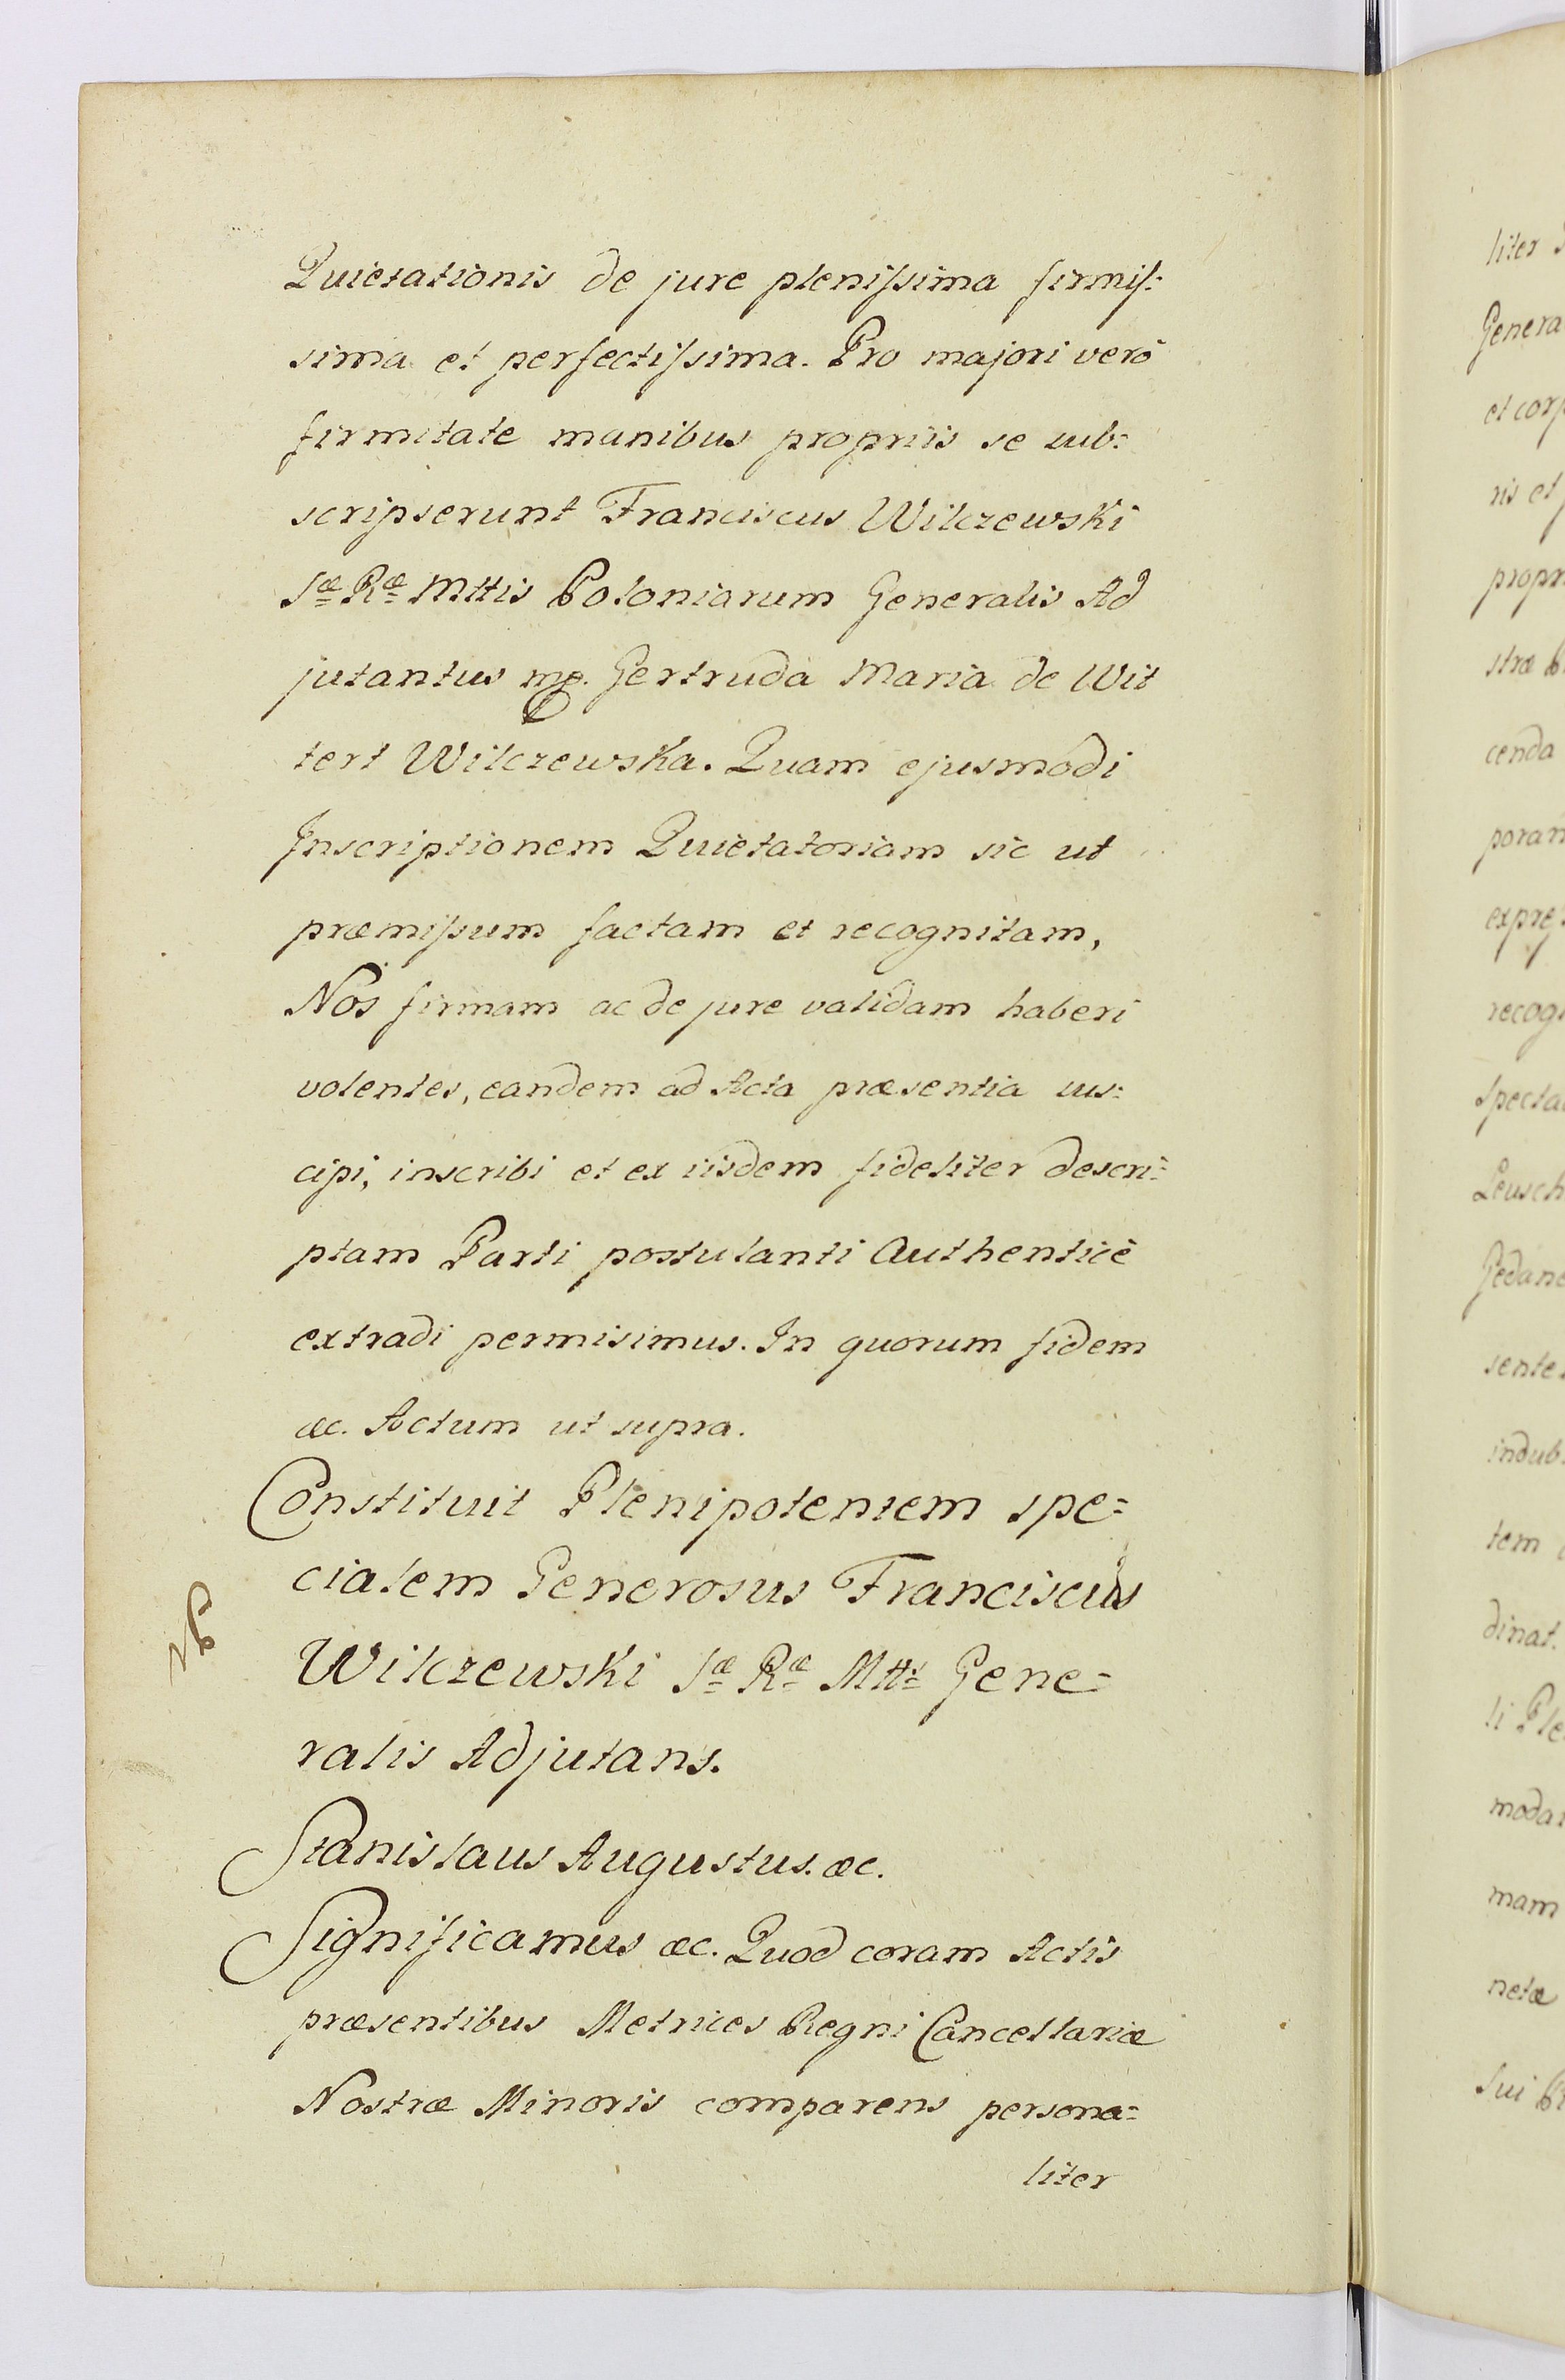 Quietationis de jure plenissima firmis:
sima et perfectissima. Pro majori verò
firmitate manibus propriis se sub:
scripserunt Franciscus Wilczewski
Sæ Ræ Mttis Poloniarum Generalis Ad
jutantus mp. Gertruda Maria de Wit
tert Wilczewska. Quam ejusmodi
Inscriptionem Quietatoriam sic ut
præmissum factam et recognitam,
Nos firmam ac de jure validam haberi
volentes, eandem ad Acta præsentia sus:
cipi, inscribi et ex iisdem fideliter descri:
ptam Parti postulanti Authenticè
extradi permisimus. In quorum fidem
æc. Actum ut supra.
Constituit Plenipotentem spe=
cialem Generosus Franciscus
Wilczewski Sæ Ræ Mttis Gene=
ralis Adjutans.
Stanislaus Augustus. æc.
Significamus æc. Quod coram Actis
præsentibus Metrices Regni Cancellariæ
Nostræ Minoris comparens persona=
liter
liter
Genera
et corp
ris et
propr
stræ
cenda
poran
expre
recog
specta
Leusch
Gedan
sente
indub
tem
dinat.
li Ple
moda
mam
netæ
Sui